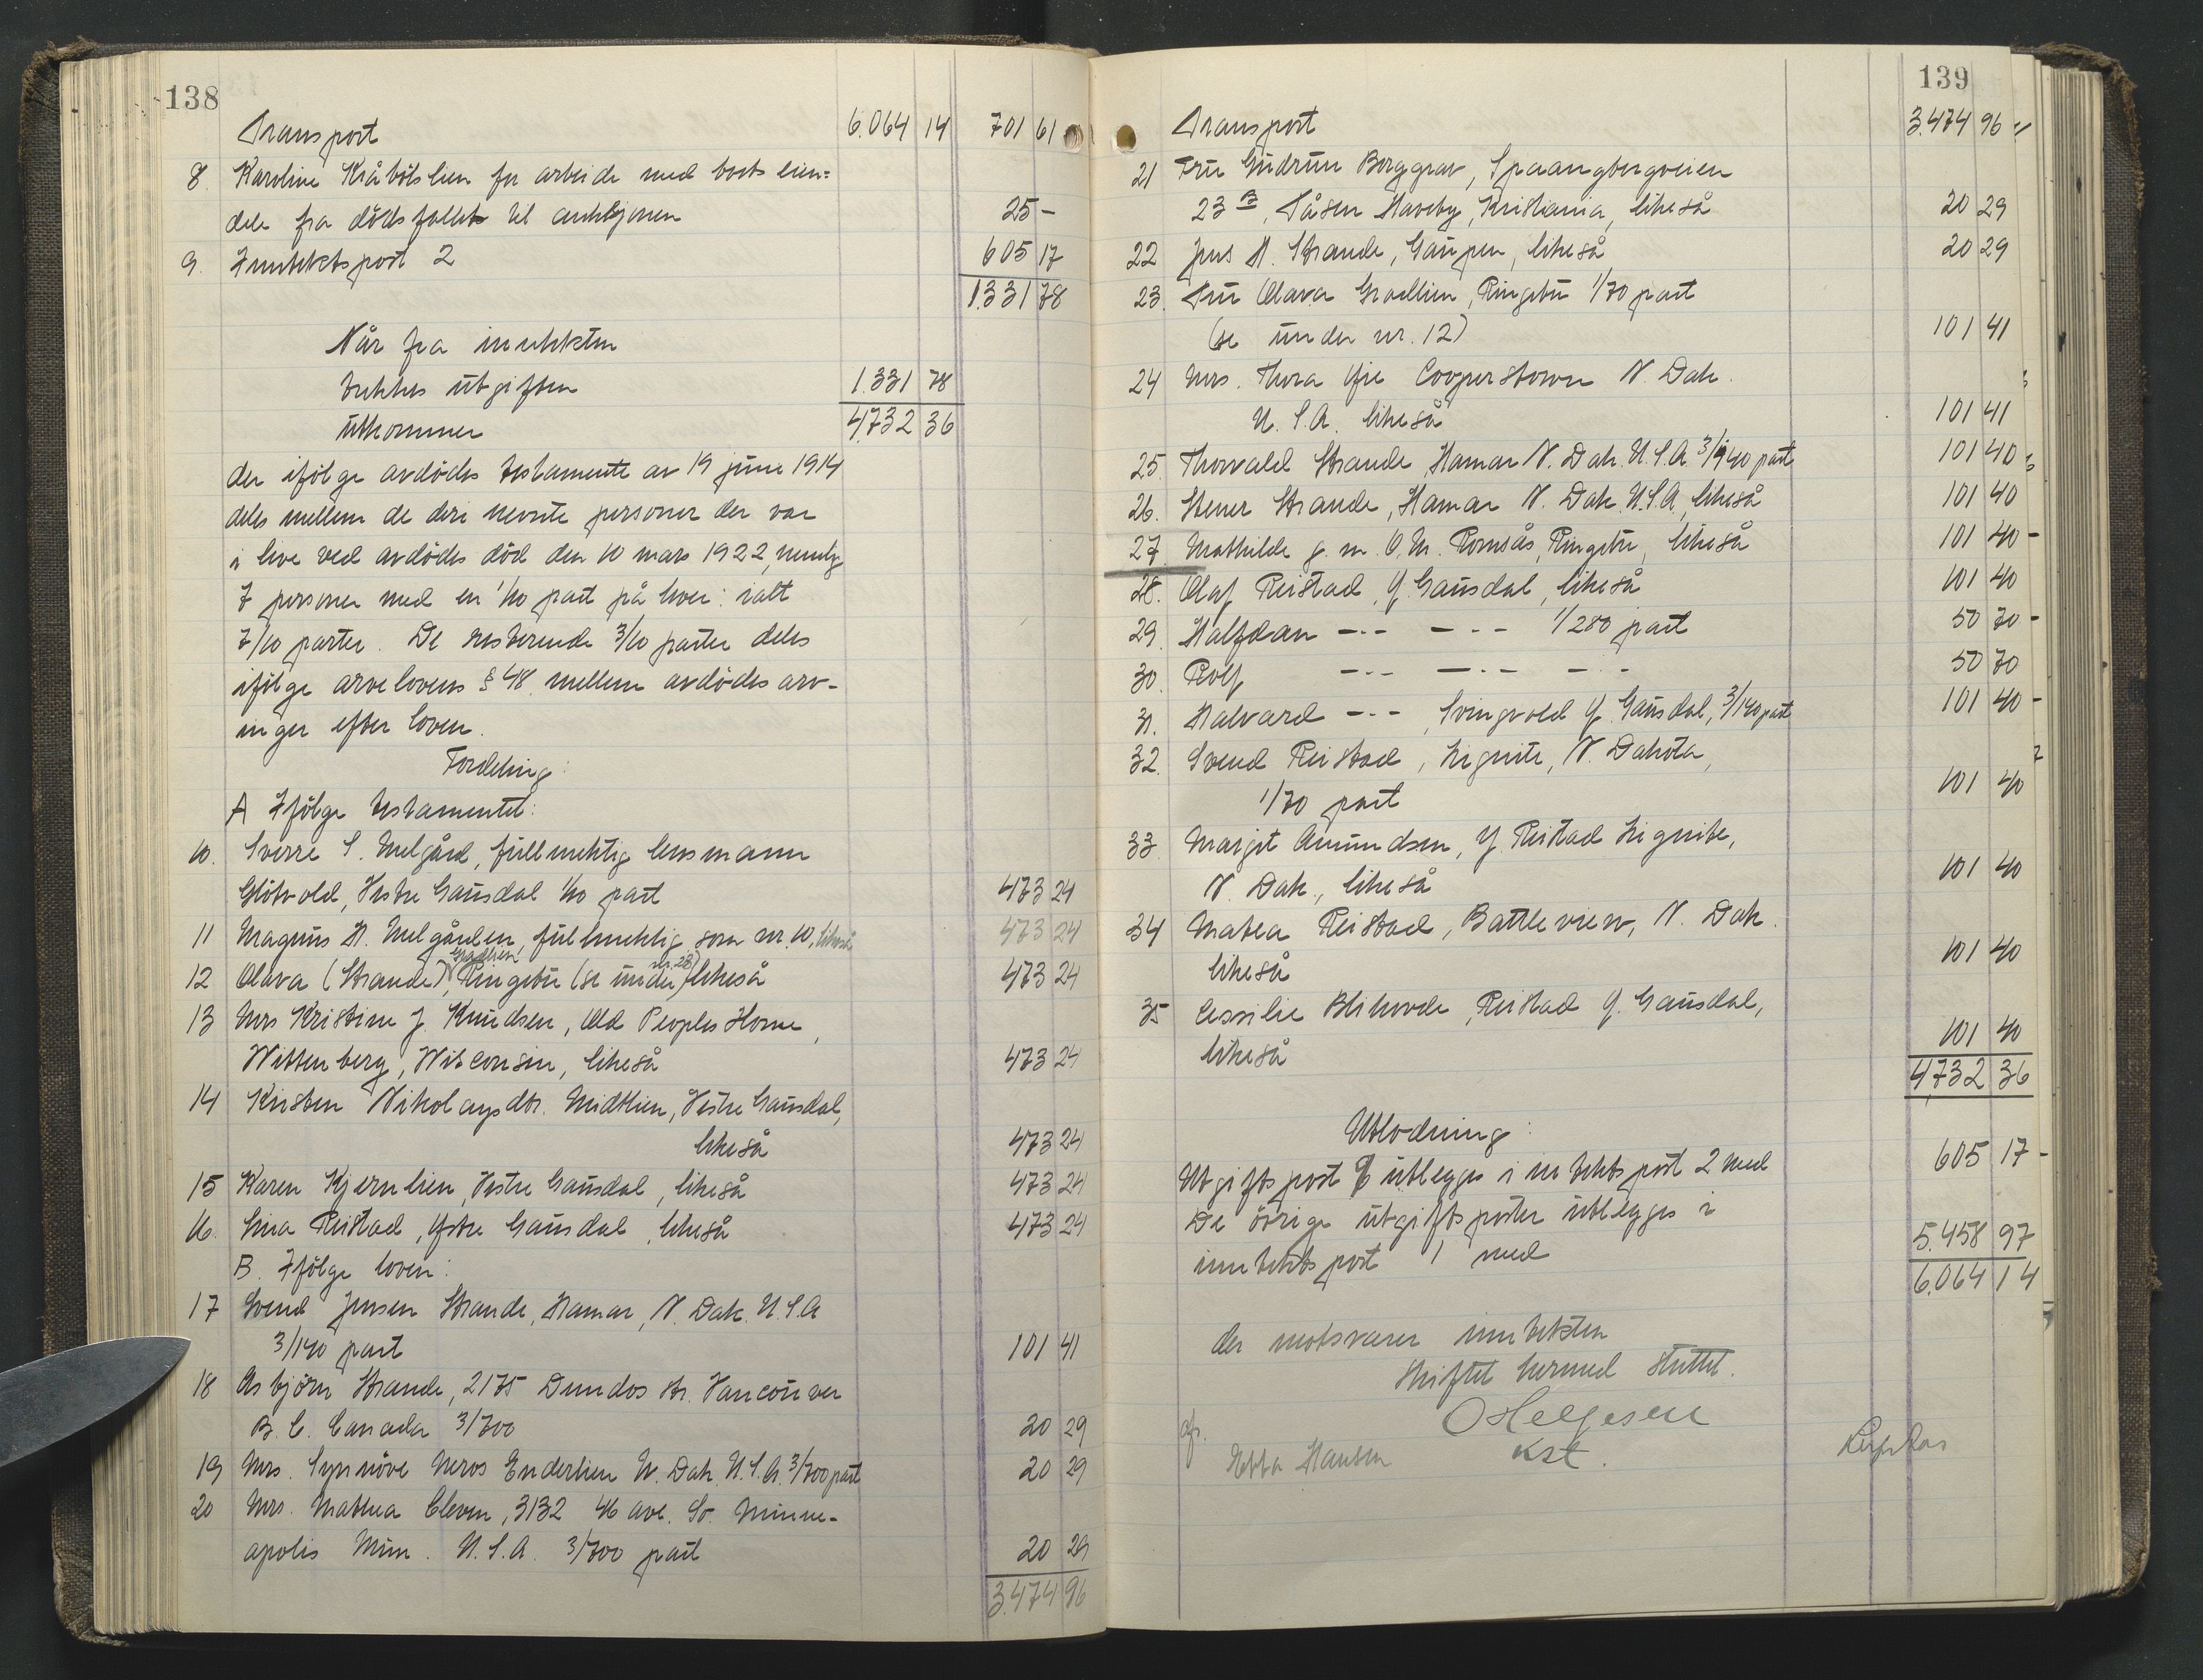 138
Transport 6.064 14 701 61
8. Karoline Kråbölslien for arbeide med boets eien=
dele fra dödsfallet til auksjonen 25 -
9. Inntektspost 2 605 17
1.331 78
Når fra inntekten
trekkes utgiften 1.331 78
utkommer 4.732 36
der ifölge avdödes testamente av 19 juni 1914
deles mellem de deri nevnte personer der var
i live ved avdödes död den 10 mars 1922, nemlig
7 personer med en 1/10 part på hver: ialt
7/10 parter. De resterende 3/10 parter deles
ifölge arvelovens § 48 mellem avdödes arv-
inger efter loven.
Fordeling:
A Ifölge testamentet:
10. Sverre S. Melgård, fullmektig lensmann
Glötvold, Vestre Gausdal 1/10 part 473 24
11 Magnus H. Melgården, fullmektig som nr. 10, likeså 473 24
12 Olava (Strande) Graslien, Ringebu (se under nr. 23) likeså 473 24
13 Mrs Kristine J. Knudsen, Old Peoples Home,
Wittenberg, Wisconsin, likeså 473 24
14 Kristen Nikolaysdtr. Midtlien, Vestre Gausdal,
likeså 473 24
15 Karen Kjernlien, Vestre Gausdal, likeså 473 24
16. Lina Reistad, Östre Gausdal, likeså 473 24
B. Ifölge loven:
17 Svend Jensen Strande, Hamar, N. Dak. U.S.A
3/140 part 101 41
18 Asbjörn Strande, 2175 Dundas str. Vancouver
B. C. Canada 3/700 20 29
19 Mrs. Synnöve Neros Enderlien N. Dak. U.S.A. 3/700 part 20 29
20 Mrs. Mathea Cleven, 3132 46 ave. So. Minne-
apolis Minn. U.S.A. 3/700 part 20 29
3.474 96
139
Transport 3.474 96
21 Fru Gudrun Borggrav, Spaangbergveien
23 B, Tåsen Haveby, Kristiania, likeså 20 29
22 Jens H. Strande, Gaupen, likeså 20 29
23. Fru Olava Graslien, Ringebu 1/70 part
(se under nr. 12) 101 41
24 Mrs. Thora Cooperstown N. Dak.
U.S.A. likeså 101 41
25 Thorvald Strande, Hamar N. Dak. U.S.A. 3/140 part 101 40
26. Stener Strande, Hamar N. Dak. U.S.A, likeså 101 40
27. Mathilde g. m. O. M. Romsås, Ringebu, likeså 101 40 -
28. Olaf Reistad, Ö. Gausdal, likeså 101 40
29. Halfdan -"- -"- 1/280 part 50 70 -
30. Rolf -"- -"- -"- 50 70
31. Halvard -"- , Svingvold Ö. Gausdal, 3/140 part 101 40 -
32. Svend Reistad, Lignite, N. Dakota,
1/70 part 101 40
33 Margit Amundsen, f. Reistad Lignite,
N. Dak., likeså 101 40
34 Matea Reistad, Battleview, N. Dak.
likeså 101 40
35 Cessilie Blihovde, Reistad Ö. Gausdal,
likeså 101 40
4.732 36
Utlodning:
Utgiftspost 9 utlegges i inntektspost 2 med 605 17 -
De övrige utgiftsposter utlegges i
inntektspost 1 med 5.458 97
6.064 14
der motsvarer inntekten
Skiftet hermed sluttet.
O Helgesen
kst.
Ebba Hansen